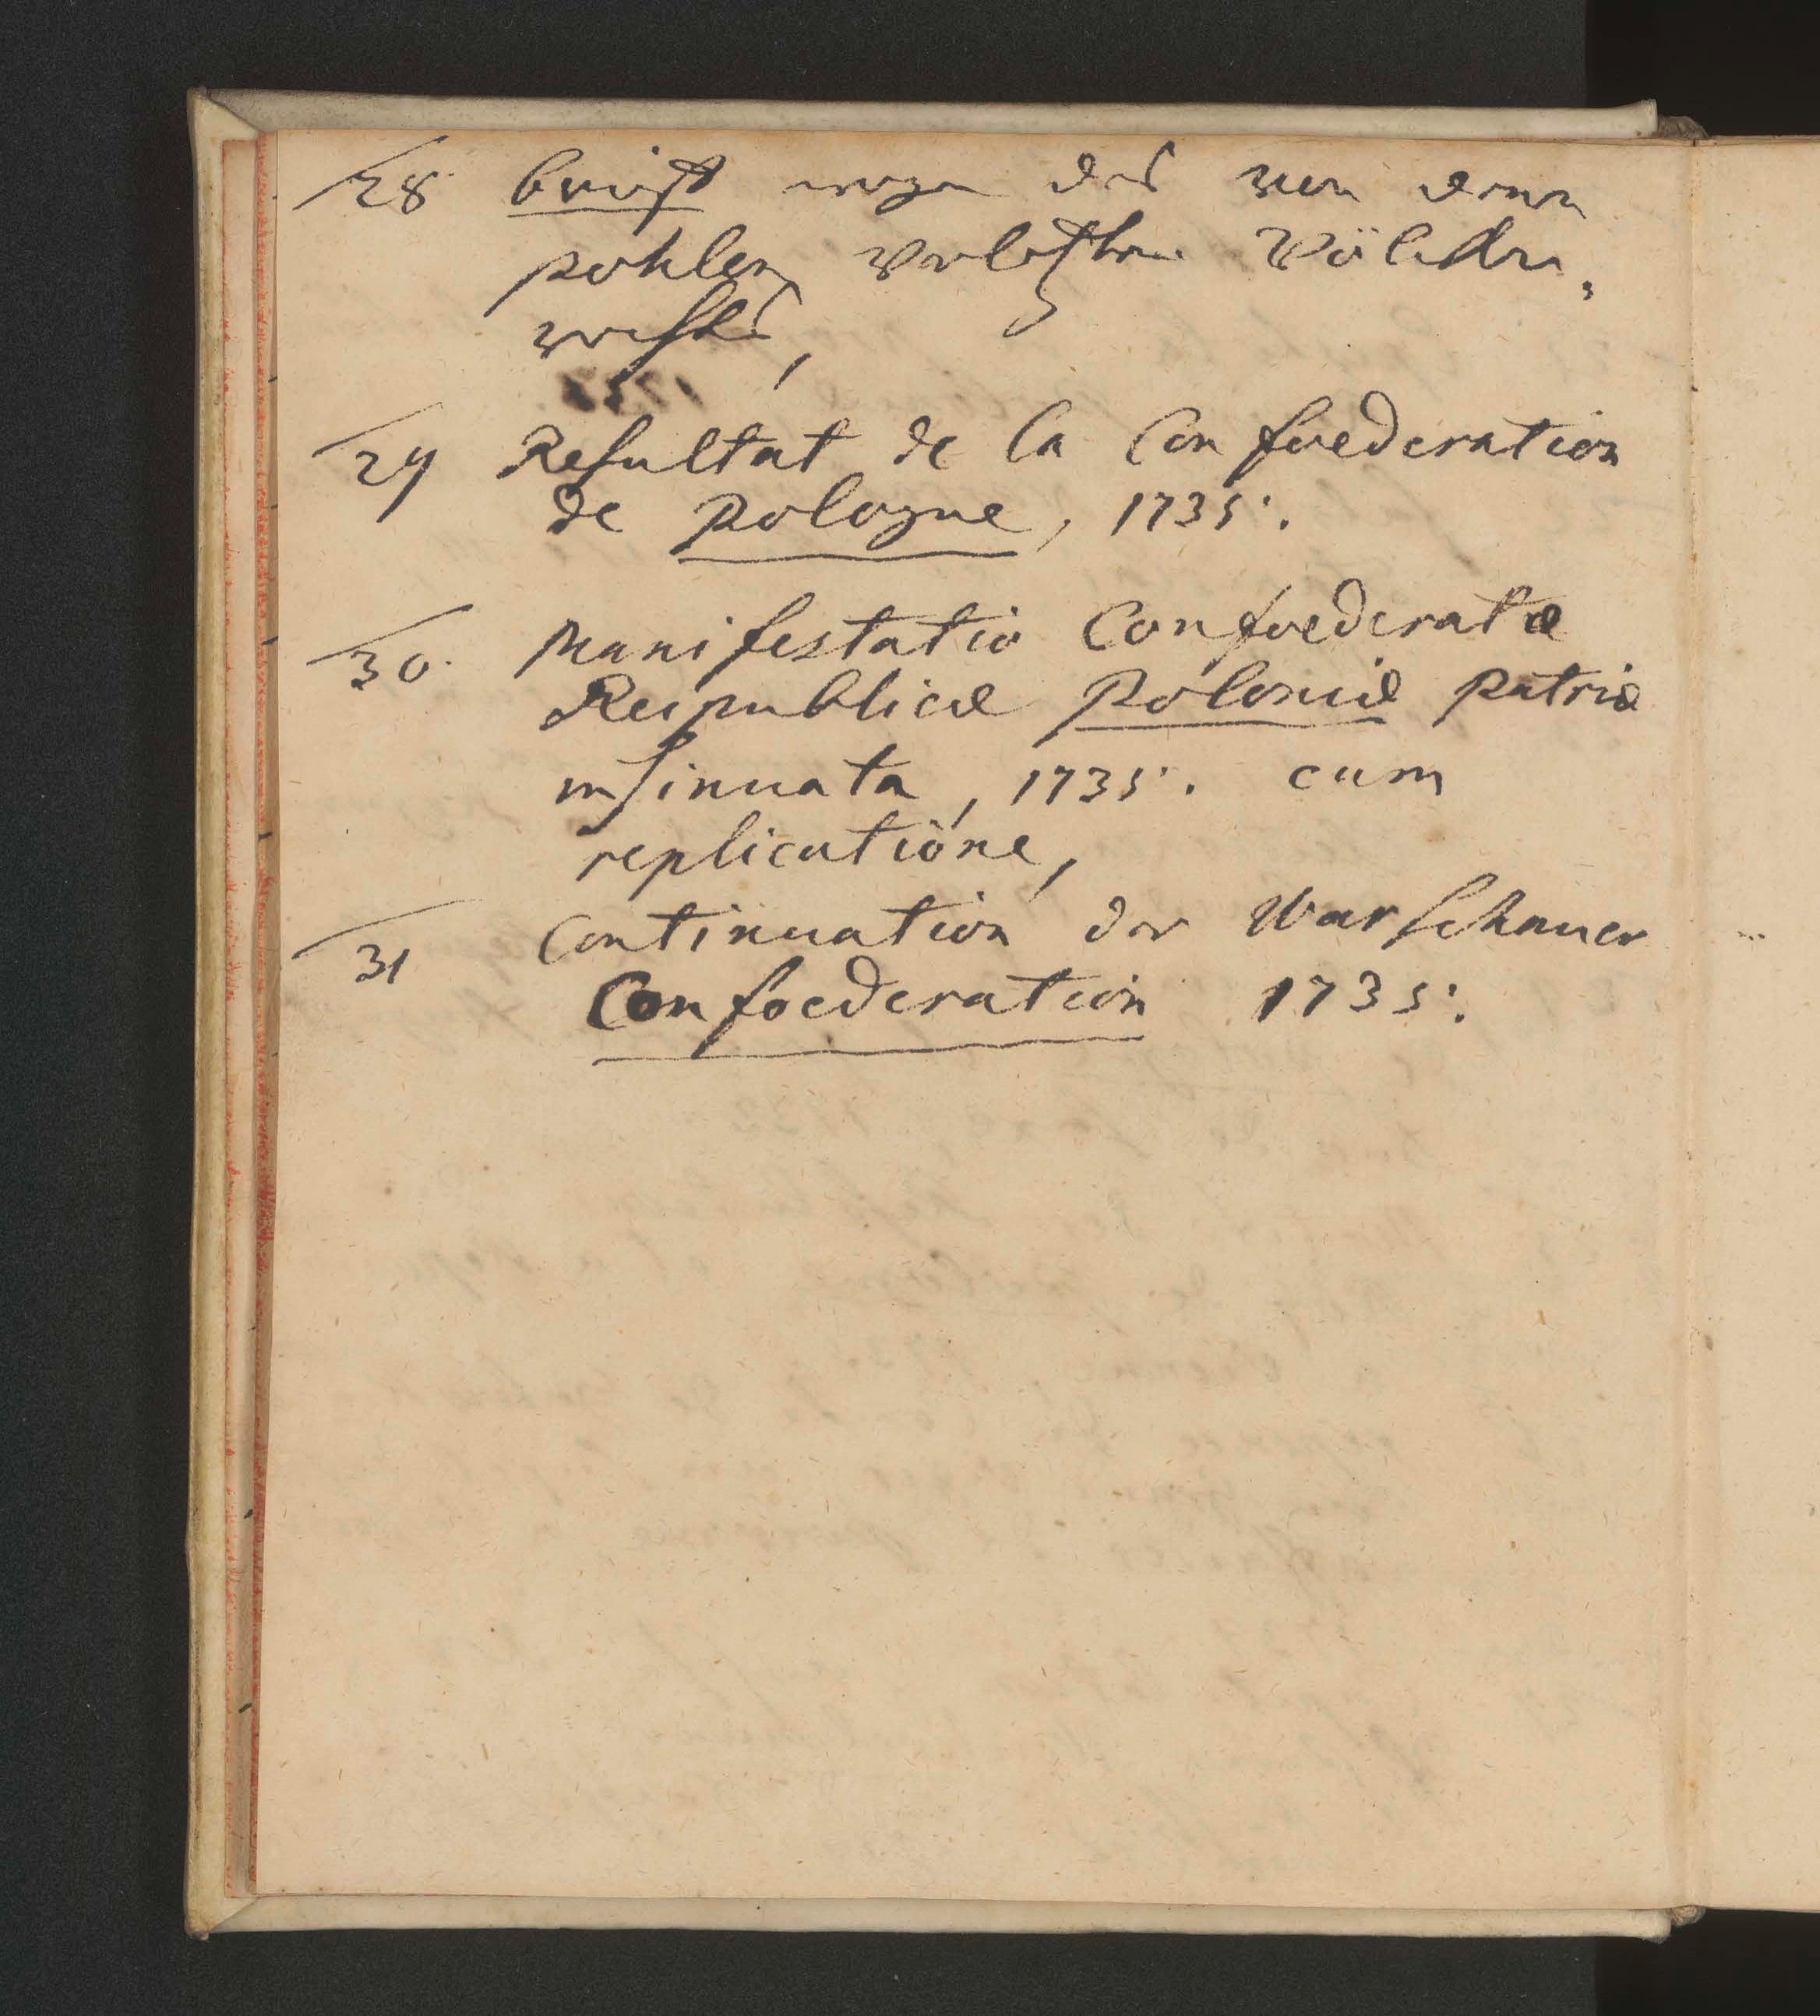 28. brieff wegen des von denen
pohlen verletzten Völcker,
rechts,
29 Resultat de la Confoederation
de Pologne, 1735.
30. Manifestatio Confoederatæ
Reipublicæ Poloniæ patriæ
insinuata, 1735. cum
replicatione,
31 Continuation der Warschauer
Confoederation 1735.